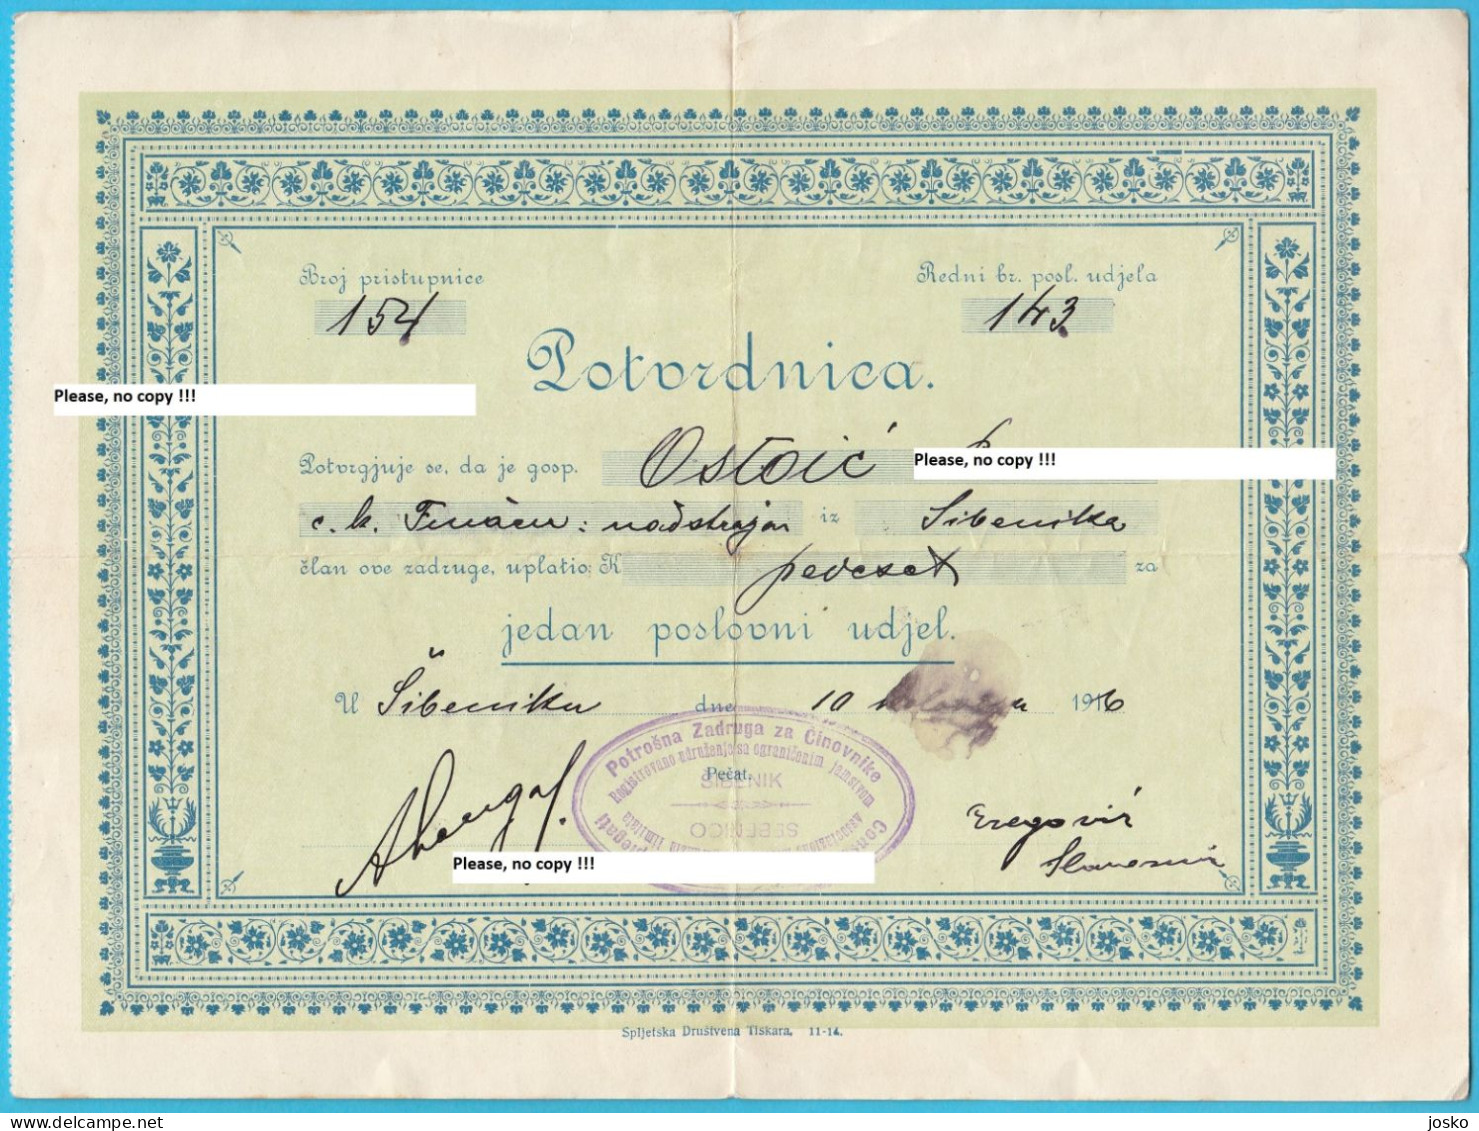 Broj pristupnice Redni br. posl. udjela
154 143
Potvrdnica.
Please, no copy !!!
Potvrgjuje se, da je gosp. Ostoić
Please, no copy !!!
c. k. Financ: nadstražar iz Šibenika
član ove zadruge, uplatio K pedeset za
jedan poslovni udjel.
U Šibeniku dne 10 kolovoza 1916
Potrošna Zadruga za Činovnike
Registrovano udruženje sa ograničenim jamstvom
Pečat.
ŠIBENIK
SEBENICO
limitata
Gregović
Please, no copy !!!
Spljetska Društvena Tiskara. 11-14.
josko